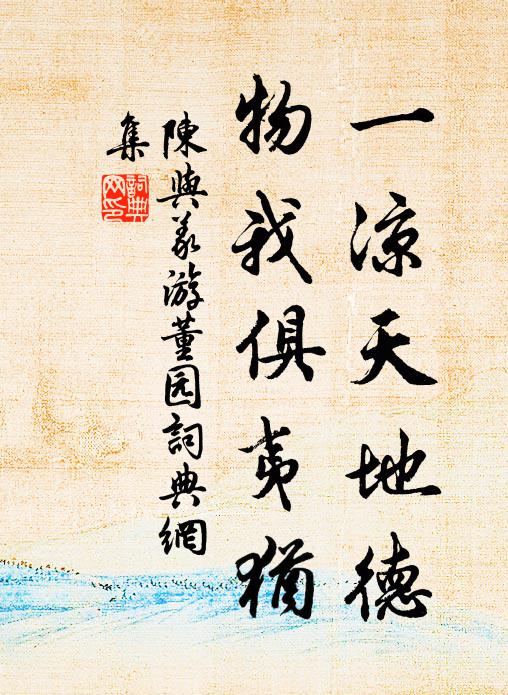 一凉天地德
物我俱夷犹
陳與義游董园詞典網
集
詞典
网印